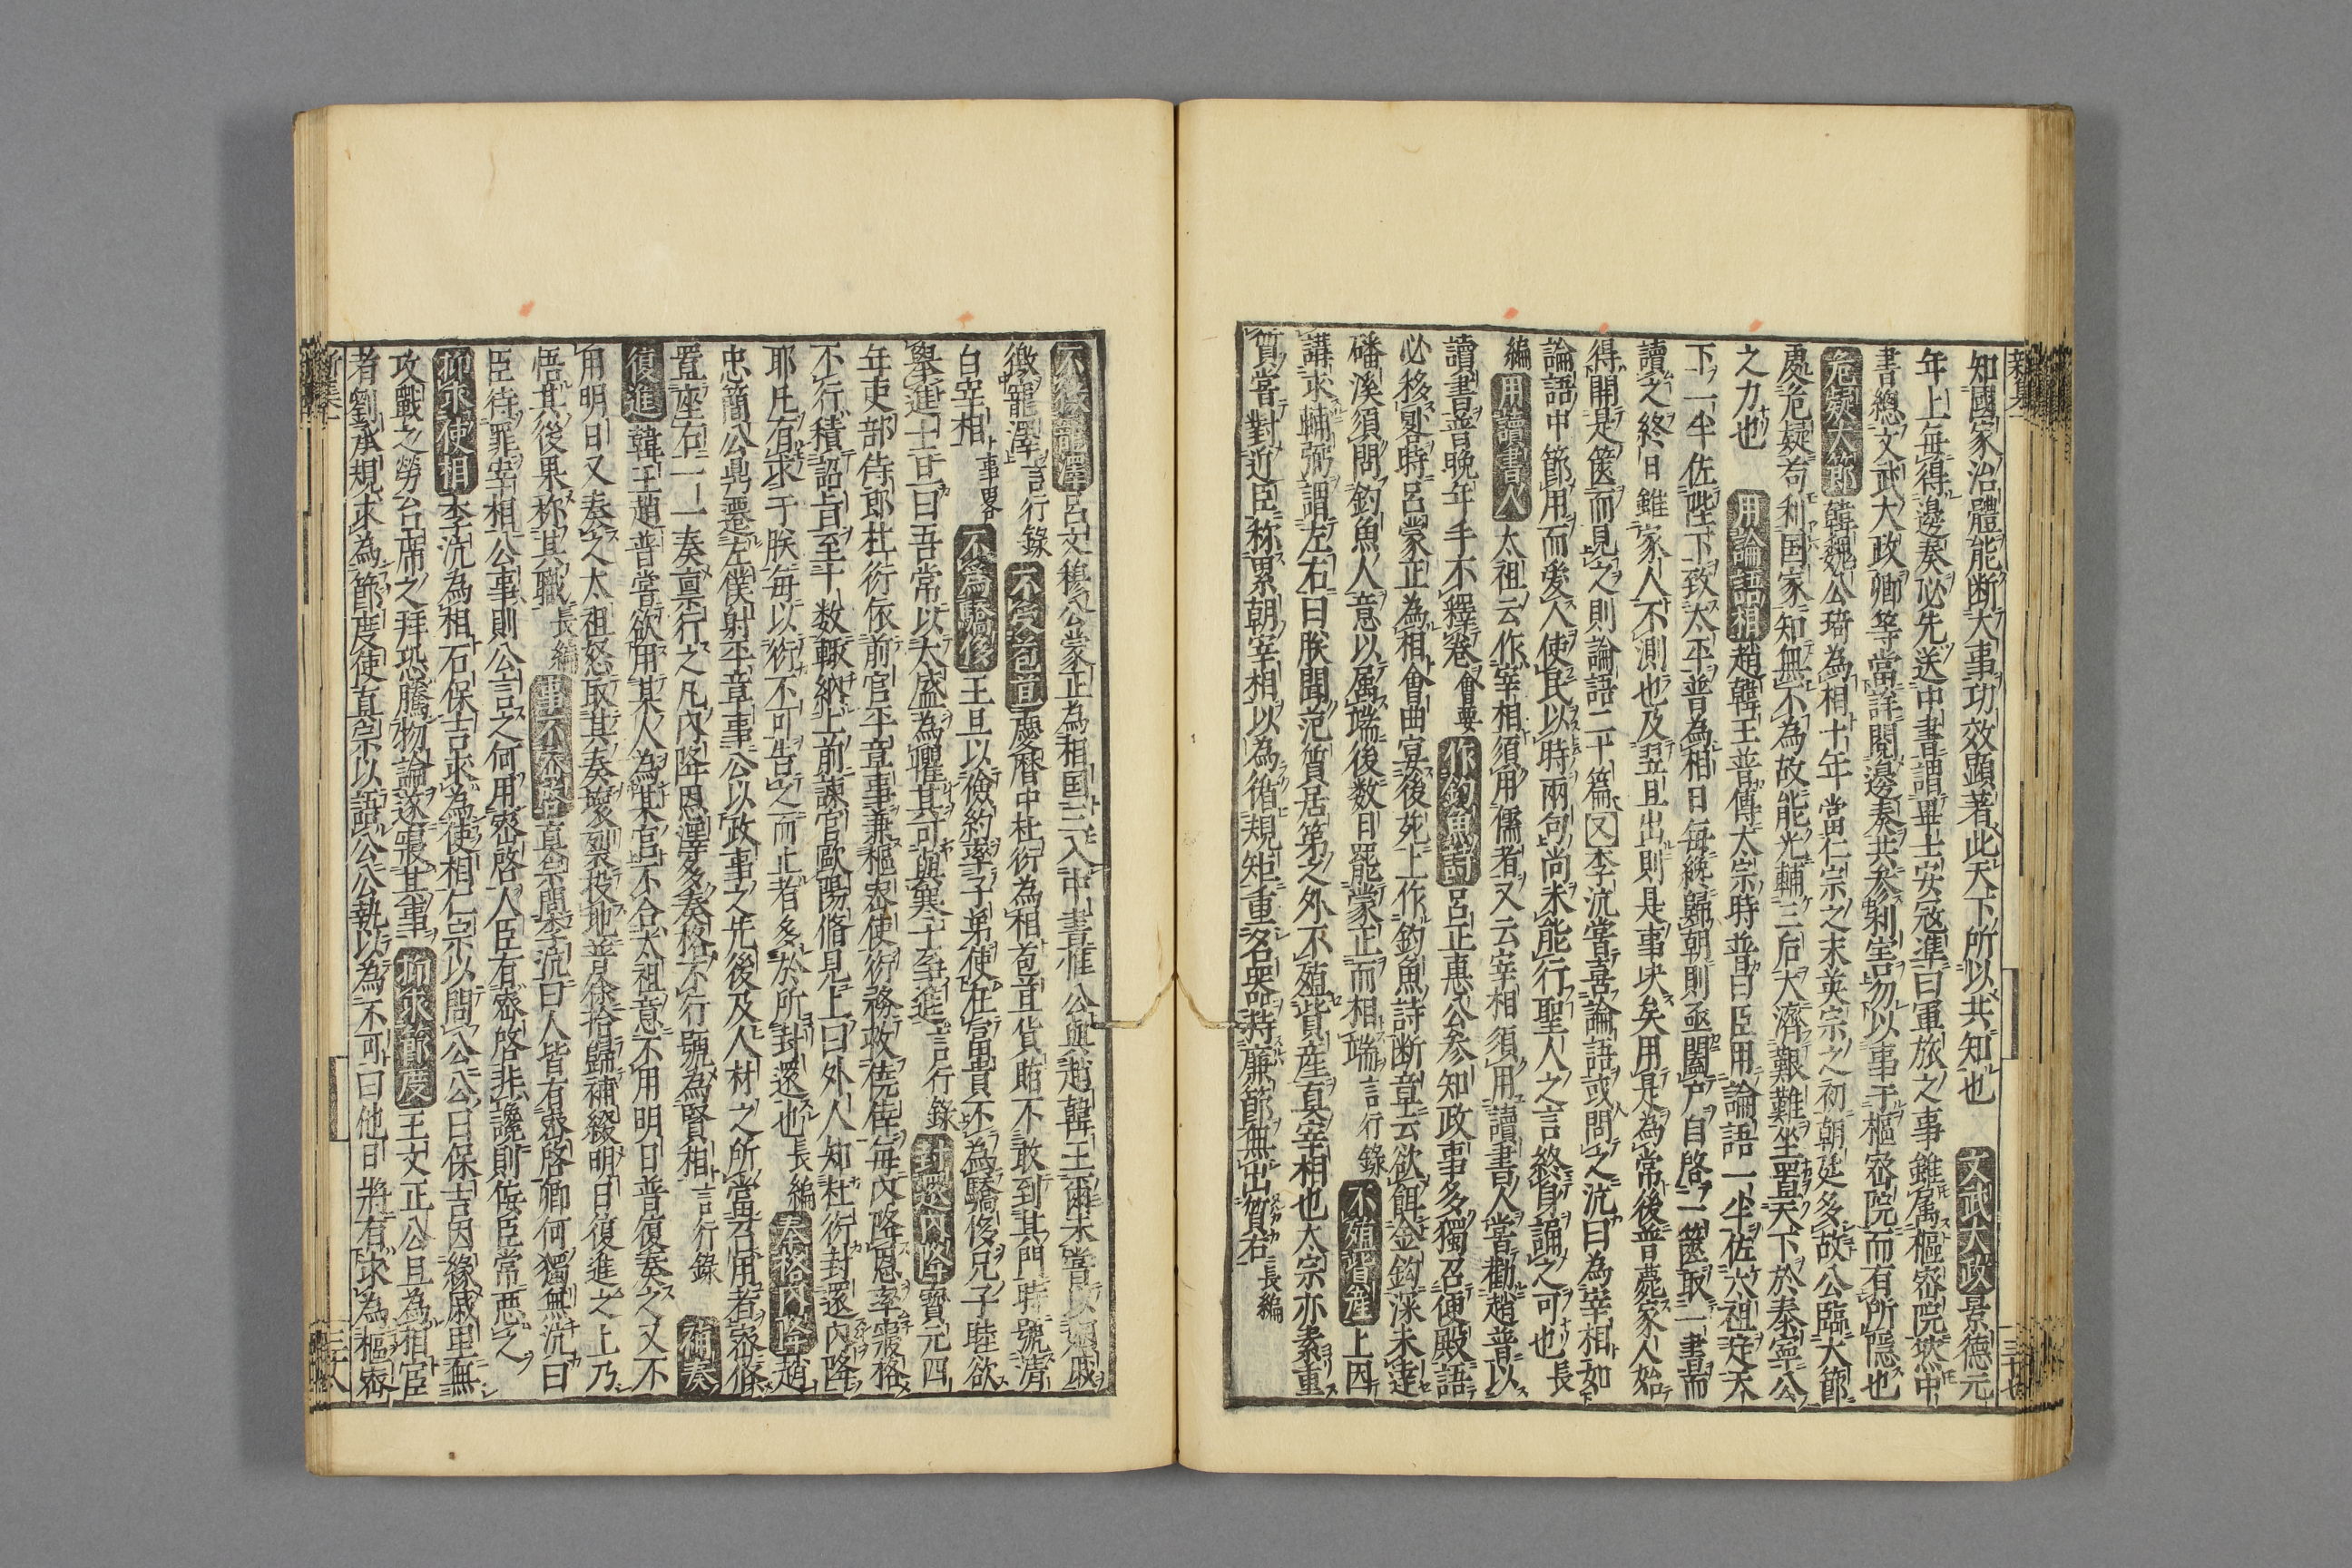 知國家治體能断大事功效顕著此天下所以共知也 文武大政 景德元
年上毎得邊奏必先送中書謂畢士安冦準曰軍旅之事雖属樞宻院然中
書總文武大政卿等當詳閱邊奏共参利害勿以事于樞宻院而有所隱也
危疑大節 韓魏公琦為相十年當仁宗之末英宗之初朝廷多故公臨大節
處危疑苟利国家知無不為故能光輔三后大濟艱難坐置天下於泰寧公
之力也 用論語相 趙韓王普傳太宗時普曰臣用論語一半佐太祖定天
下一半佐陛下致太平普為相日毎統歸朝則亟闔戶自啓一篋取一書而
讀之終日雖家人不測也及翌旦出則是事决矣用是為常後普薨家人始
得開是篋而見之則論語二十篇 又 李沆嘗喜論語或問之沆曰為宰相如
論語中節用而愛人使民以時兩句尚未能行聖人之言終身誦之可也 長
編 用讀書人 太祖云作宰相須用儒者又云宰相須用讀書人嘗勸趙普以
讀書普晩年手不釋巻 會要 作釣魚詩 呂正惠公参知政事多獨召便殿語
必移晷時呂蒙正為相會曲宴後苑上作釣魚詩断章云欲餌金鈎深未達
磻溪須問釣魚人意以属端後数日罷蒙正而相端 言行錄 不殖貲產 上因
講求輔弼謂左右曰朕聞范質居第之外不殖貲産真宰相也太宗亦素重
質嘗對近臣称累朝宰相以為循規矩重名器持廉節無出質右 長編
不徼寵澤 呂文穆公蒙正為相国三入中書惟公與趙韓王爾未嘗以姻戚
徼寵澤 言行錄 不受苞苴 慶暦中杜衍為相苞苴貨賂不敢到其門時號清
白宰相 事畧 不為驕侈 王旦以儉約率子弟使在富貴不為驕侈兄子睦欲
舉進士旦曰吾常以大盛為懼其可與寒士爭進 言行錄 封還内降 寶元四
年吏部侍郎杜衍依前官平章事兼樞宻使衍務攻僥倖毎内降恩率寢格
不行積詔旨至十数輙納上前諫官歐陽脩見上曰外人知杜衍封還内降
耶凡有求于朕毎以衍不可告之而止者多於所封還也 長編 奏格内降 趙
忠簡公鼎遷左僕射平章事公以政事之先後及人材之所當召用者宻條
置座右一一奏禀行之凡内降恩澤多奏格不行號為賢相 言行錄 補奏
復進 韓王趙普嘗欲用某人為某官不合太祖意不用明日普復奏之又不
用明日又奏之太祖怒取其奏壞裂投地普徐拾歸補綴明日復進之上乃
悟其後果称其職 長編 事不宻啓 真宗問李沆曰人皆有宻啓卿何獨無沆曰
臣待罪宰相公事則公言之何用宻啓人臣有宻啓非讒則佞臣常惡之
抑求使相 李沆為相石保吉求為使相仁宗以問公公曰保吉因緣戚里無
攻戰之勞台席之拜恐騰物論遂寢其事 抑求節度 王文正公旦為相宦
者劉承規求為節度使真宗以語公公執以為不可曰他日將有求為樞宻